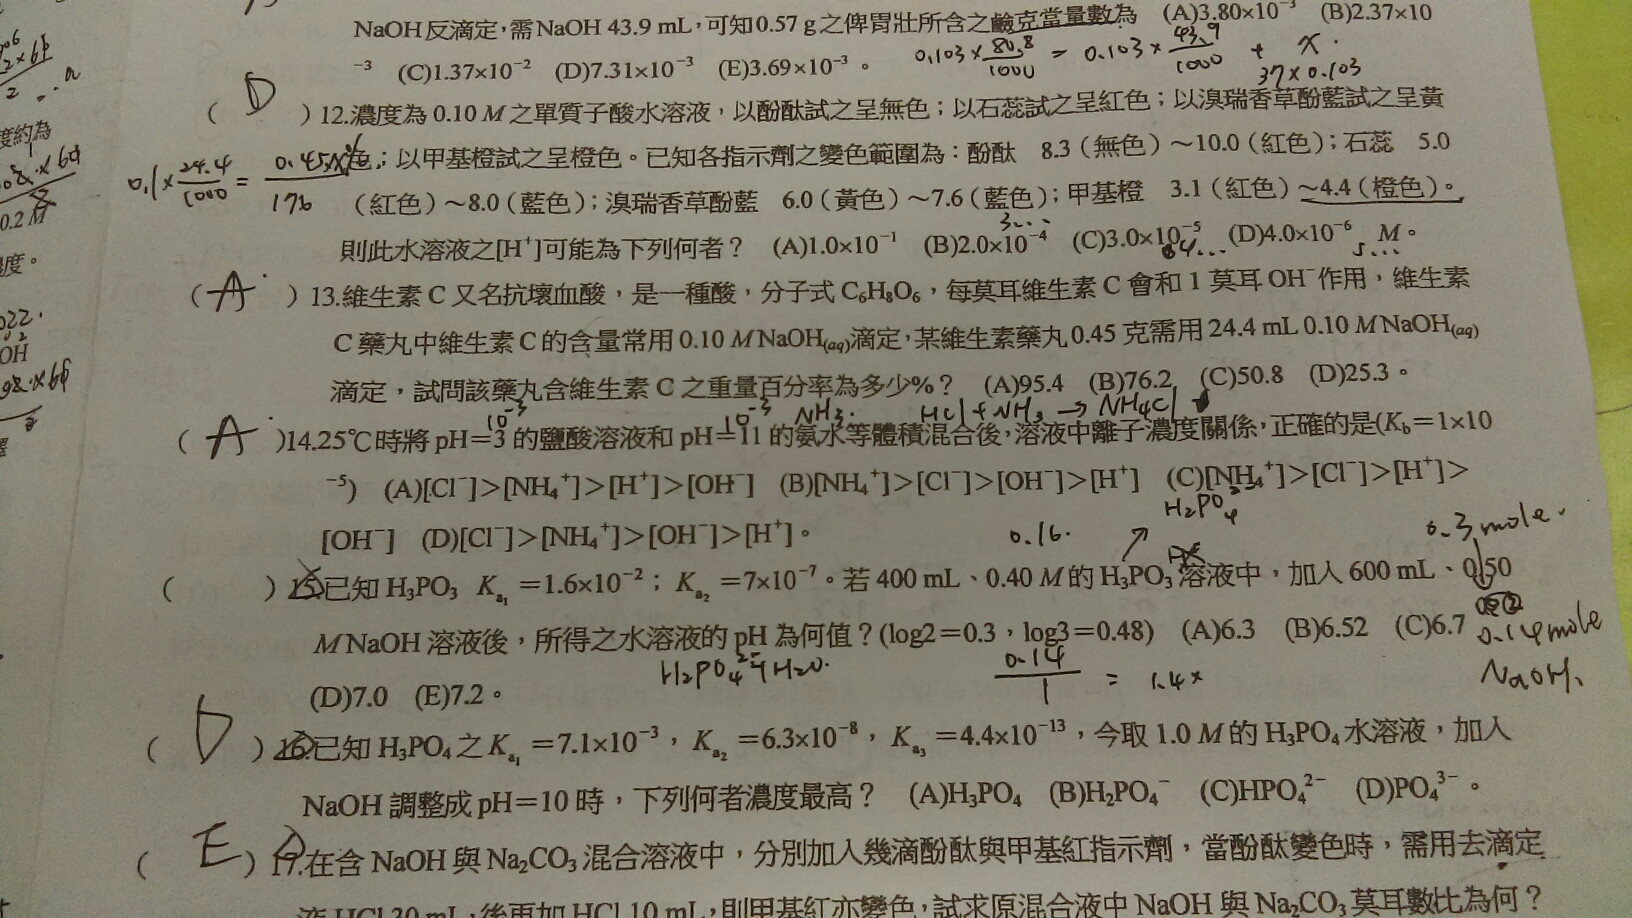 NaOH 反滴定，需 NaOH 43.9 mL，可知 0.57 g 之俾胃壯所含之鹼克當量數為 (A)3.80×10⁻³ (B)2.37×10
⁻³ (C)1.37×10⁻² (D)7.31×10⁻³ (E)3.69×10⁻³。
0.103×80.8/1000 = 0.103×43.9/1000 + x.
37×0.103
( D )12.濃度為 0.10 M 之單質子酸水溶液，以酚酞試之呈無色；以石蕊試之呈紅色；以溴瑞香草酚藍試之呈黃
色；以甲基橙試之呈橙色。已知各指示劑之變色範圍為：酚酞 8.3（無色）～10.0（紅色）；石蕊 5.0
0.1×24.4/1000 =
176
（紅色）～8.0（藍色）；溴瑞香草酚藍 6.0（黃色）～7.6（藍色）；甲基橙 3.1（紅色）～4.4（橙色）。
3...
則此水溶液之[H⁺]可能為下列何者？ (A)1.0×10⁻¹ (B)2.0×10⁻⁴ (C)3.0×10⁻⁵ (D)4.0×10⁻⁶ M。
4... 5...
( A )13.維生素 C 又名抗壞血酸，是一種酸，分子式 C₆H₈O₆，每莫耳維生素 C 會和 1 莫耳 OH⁻作用，維生素
C 藥丸中維生素 C 的含量常用 0.10 M NaOH(aq)滴定，某維生素藥丸 0.45 克需用 24.4 mL 0.10 M NaOH(aq)
滴定，試問該藥丸含維生素 C 之重量百分率為多少%？ (A)95.4 (B)76.2 (C)50.8 (D)25.3。
10⁻³ 10⁻³ NH₃. HCl + NH₃ → NH₄Cl
( A )14.25℃時將 pH＝3 的鹽酸溶液和 pH＝11 的氨水等體積混合後，溶液中離子濃度關係，正確的是(K_b＝1×10
⁻⁵) (A)[Cl⁻]＞[NH₄⁺]＞[H⁺]＞[OH⁻] (B)[NH₄⁺]＞[Cl⁻]＞[OH⁻]＞[H⁺] (C)[NH₄⁺]＞[Cl⁻]＞[H⁺]＞
[OH⁻] (D)[Cl⁻]＞[NH₄⁺]＞[OH⁻]＞[H⁺]。
0.16. 0.3 mole.
( )15.已知 H₃PO₃ K_a₁＝1.6×10⁻²；K_a₂＝7×10⁻⁷。若 400 mL、0.40 M 的 H₃PO₃ 溶液中，加入 600 mL、0.50
M NaOH 溶液後，所得之水溶液的 pH 為何值？(log2＝0.3，log3＝0.48) (A)6.3 (B)6.52 (C)6.7
0.14 mole
0.14/1 = 1.4×
NaOH.
(D)7.0 (E)7.2。
( D )16.已知 H₃PO₄ 之 K_a₁＝7.1×10⁻³，K_a₂＝6.3×10⁻⁸，K_a₃＝4.4×10⁻¹³，今取 1.0 M 的 H₃PO₄ 水溶液，加入
NaOH 調整成 pH＝10 時，下列何者濃度最高？ (A)H₃PO₄ (B)H₂PO₄⁻ (C)HPO₄²⁻ (D)PO₄³⁻。
( E )17.在含 NaOH 與 Na₂CO₃ 混合溶液中，分別加入幾滴酚酞與甲基紅指示劑，當酚酞變色時，需用去滴定
液 HCl 30 mL，後再加 HCl 10 mL，則甲基紅亦變色，試求原混合液中 NaOH 與 Na₂CO₃ 莫耳數比為何？
度約為
0.2 M
度。
OH